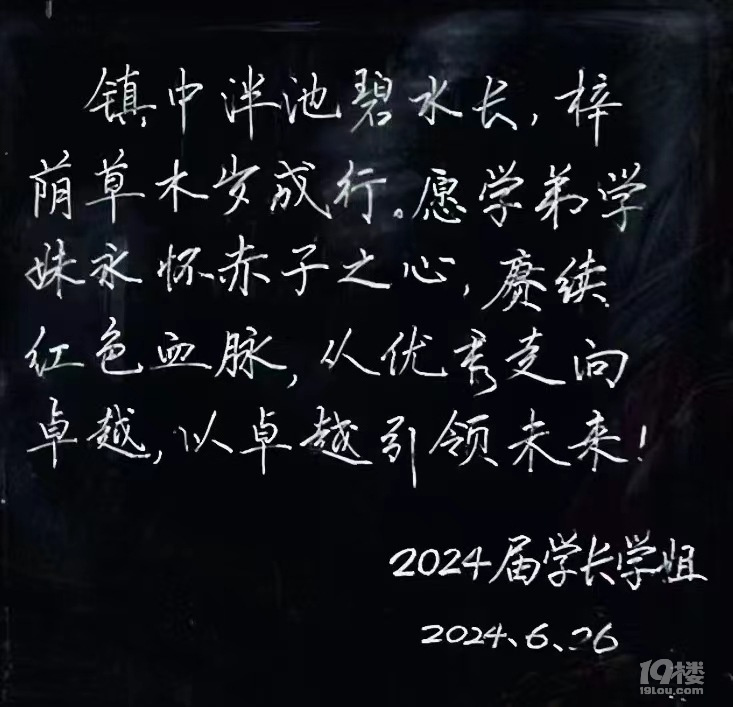 镇中泮池碧水长,梓
荫草木岁成行。愿学弟学
妹永怀赤子之心,赓续
红色血脉,从优秀走向
卓越,以卓越引领未来!
2024届学长学姐
2024、6、26
19楼
19lou.com